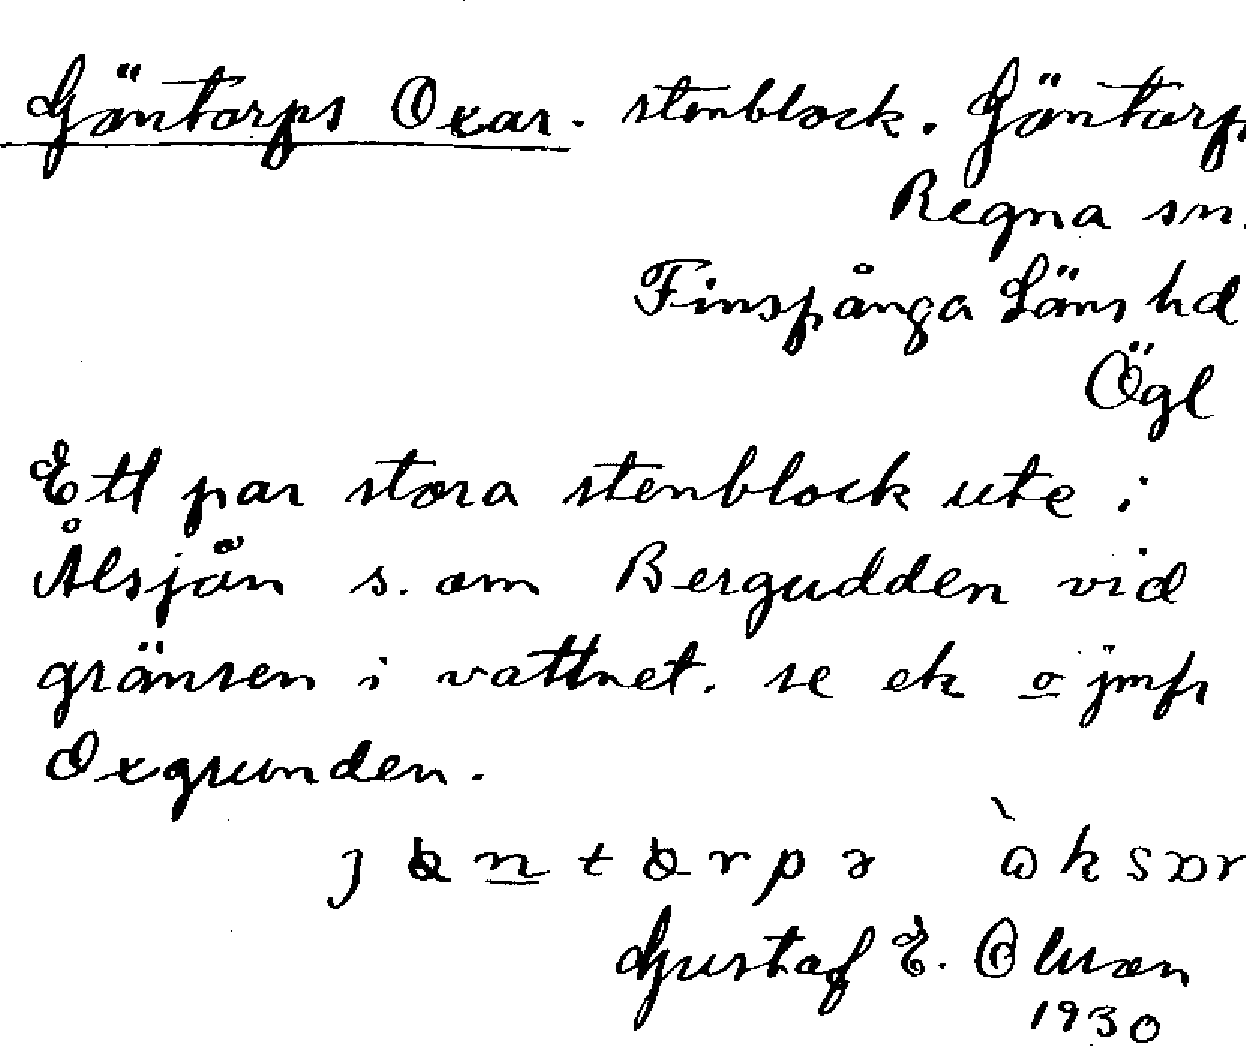 Gäntorps Oxar. stenblock. Gäntorp,
Regna sn.
Finspånga Läns hd
Ögl
Ett par stora stenblock ute i
Ålsjön s. om Bergudden vid
gränsen i vattnet. se ek o jmfr
Oxgrunden.
Gustaf E. Olsson
1930